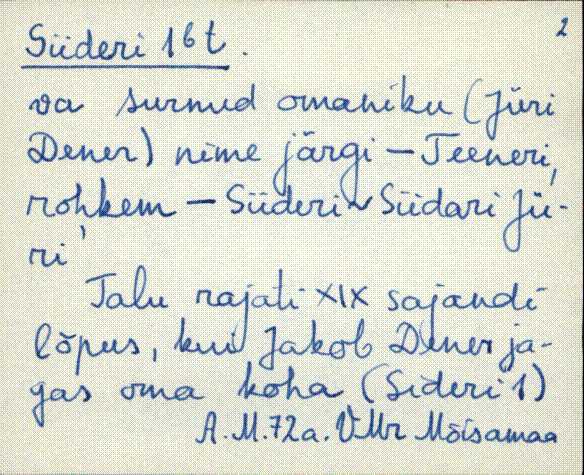 2
Siideri 16 t.
va surnud omaniku (Jüri
Dener) nime järgi – Teeneri,
rohkem – Siideri ~ Siidari Jü-
ri
Talu rajati XIX sajandi
lõpus, kui Jakob Dener ja-
gas oma koha (Sideri 1)
A.M. 72 a. VMr Mõisamaa